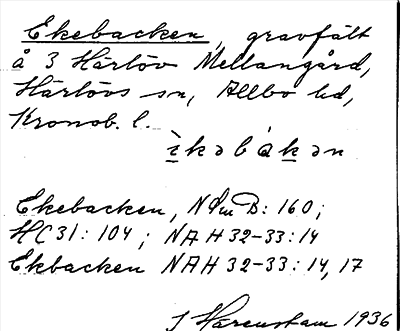 Ekebacken, gravfält
å 3 Härlöv Mellangård,
Härlövs sn, Allbo hd,
Kronob. l.
ìkəbákən
Ekebacken, NoB: 160;
HC31: 104; NAH 32-33: 14
Ekbacken NAH 32-33: 14, 17
J Harenstam 1936